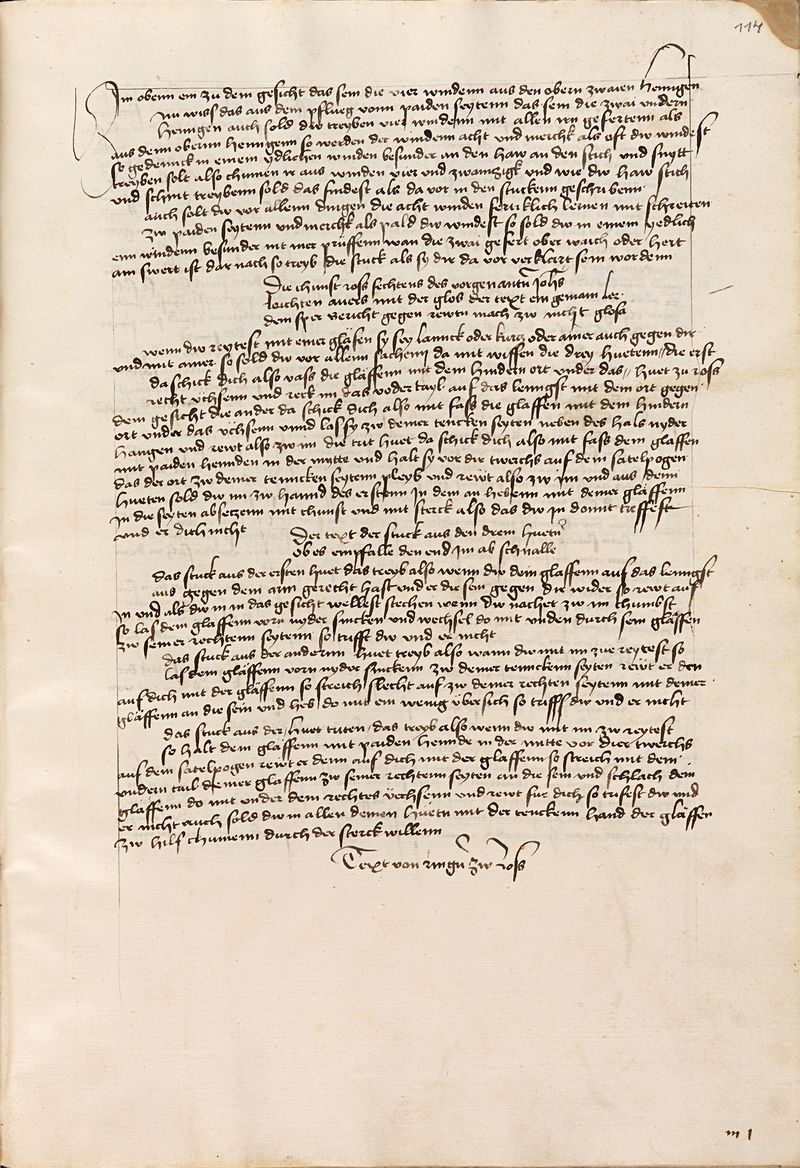 114
Im obenn ein zu dem gesicht das sein die vier windenn aus den obern zwaien henngen
Nu wiss das aus dem pflueg vonn paiden seytenn das sein die zwai undern
henngen auch sold dw treyben vier windenn mit allen irn gefertenn als
aus denn obernn henngenn so werden der windenn acht und merchk als oft dw windest
so gedennck in einem ydlichen winden besunder an den haw an den stich und snytt
treyben solt also chumen ir aus winden vier und zwainzigk und wie dw haw stich
und schnit treybenn sold das findest als da vor in den stuckenn geschribenn
auch solt dw vor allenn dingen die acht winden lernen mit schreiten
zw paiden seytenn und merchk als pald dw windest so sold dw in einem yedlich
enn windenn besunder nit mer prüffenn wan die zwai gefert ober waich oder hert
am swert ist dar nach so treyb die stuck als sy dir da vor verklart sein wordenn
Die chunst ross fechtens des vorgenantn Johs
leichten auers mit der glos der text ein gemain ler
dein sper bericht gegen rewtn mach zw nicht glosa
wenn dw reytest mit einer gläfen sy sey lannck oder kurcz oder ainer auch gegen dir
und mit ainer so sold dw vor allenn sachenn da mit wissen die drey huetenn die erst
da schick dich also vass die gläffenn mit dem hindern ort under das huet zu ross
recht üchsenn und reck im das voder tayl auf das lenngst mit dem ort gegen
dem gesicht die ander da schick dich also mit fass die glaffen mit dem hindern
ort under das üchsenn unnd las sy zw deiner tencken seyten neben des hals nyder
hangen und rewt also zw im die trit huet da schick dich also mit fass dein glaffen
mit paiden hennden in der mytte und halt sy vor dir twerchs auf dem satelpogen
das der ort zw deiner tenncken seytenn pleyb und rewt also zw im und aus denn
hueten sold dw im zw hannd des erstenn in dem an hebenn mit deiner gläffenn
in die seyten absetzenn mit chunst und mit sterck also das dw in domit treffest
und er dich nicht
Der text der stuck aus den drein huetn
Ob es empfalle den end im ab schnalle
das stuck aus der ersten huet das treyb also wenn dw dein glaffenn auf das lenngst
aus gegen dem man gerecht hast und er die sein gegen die wider so rewt auf
in und als dw in in das gesicht wellest stechen wenn dw nachet zw im chumbst
so las dein glaffenn vorn nyder sincken und wechsel do mit unden durch sein gläffen
zw seiner rechtenn seytenn so trifft dw und er nicht
das stuck aus der anderinn huet treyb also wann dw mit im zue reytest so
las dein gläffenn vorn nyder sinckenn zw deiner tennckenn seyten rewt er den
auf dich mit der gläffenn so streich slecht auf zw deiner rechten seytenn mit deiner
gläffenn an die sein und heb do mit ein wenig übersich so trifft dw und er nicht
das stuck aus der huet triten das treyb also wenn dw mit im zw reytest
so halt dein gläffenn mit paiden hennde in der mitte vor dier twerchs
auf dem satelpogen rewt er denn auf dich mit der gläffenn so streich mit dem
undern tail deiner glaffenn zw seiner rechtenn seyten an die sein und schlach dein
gläffenn do mit under dein rechtes üchsenn und rewt fue dich so trifest dw und
er nicht auch sold dw in allen deinen huetn mit der tenckenn hand der gläffen
zw hilf chumenn durch der sterck willenn
Text von ringn zw Ross
m 1